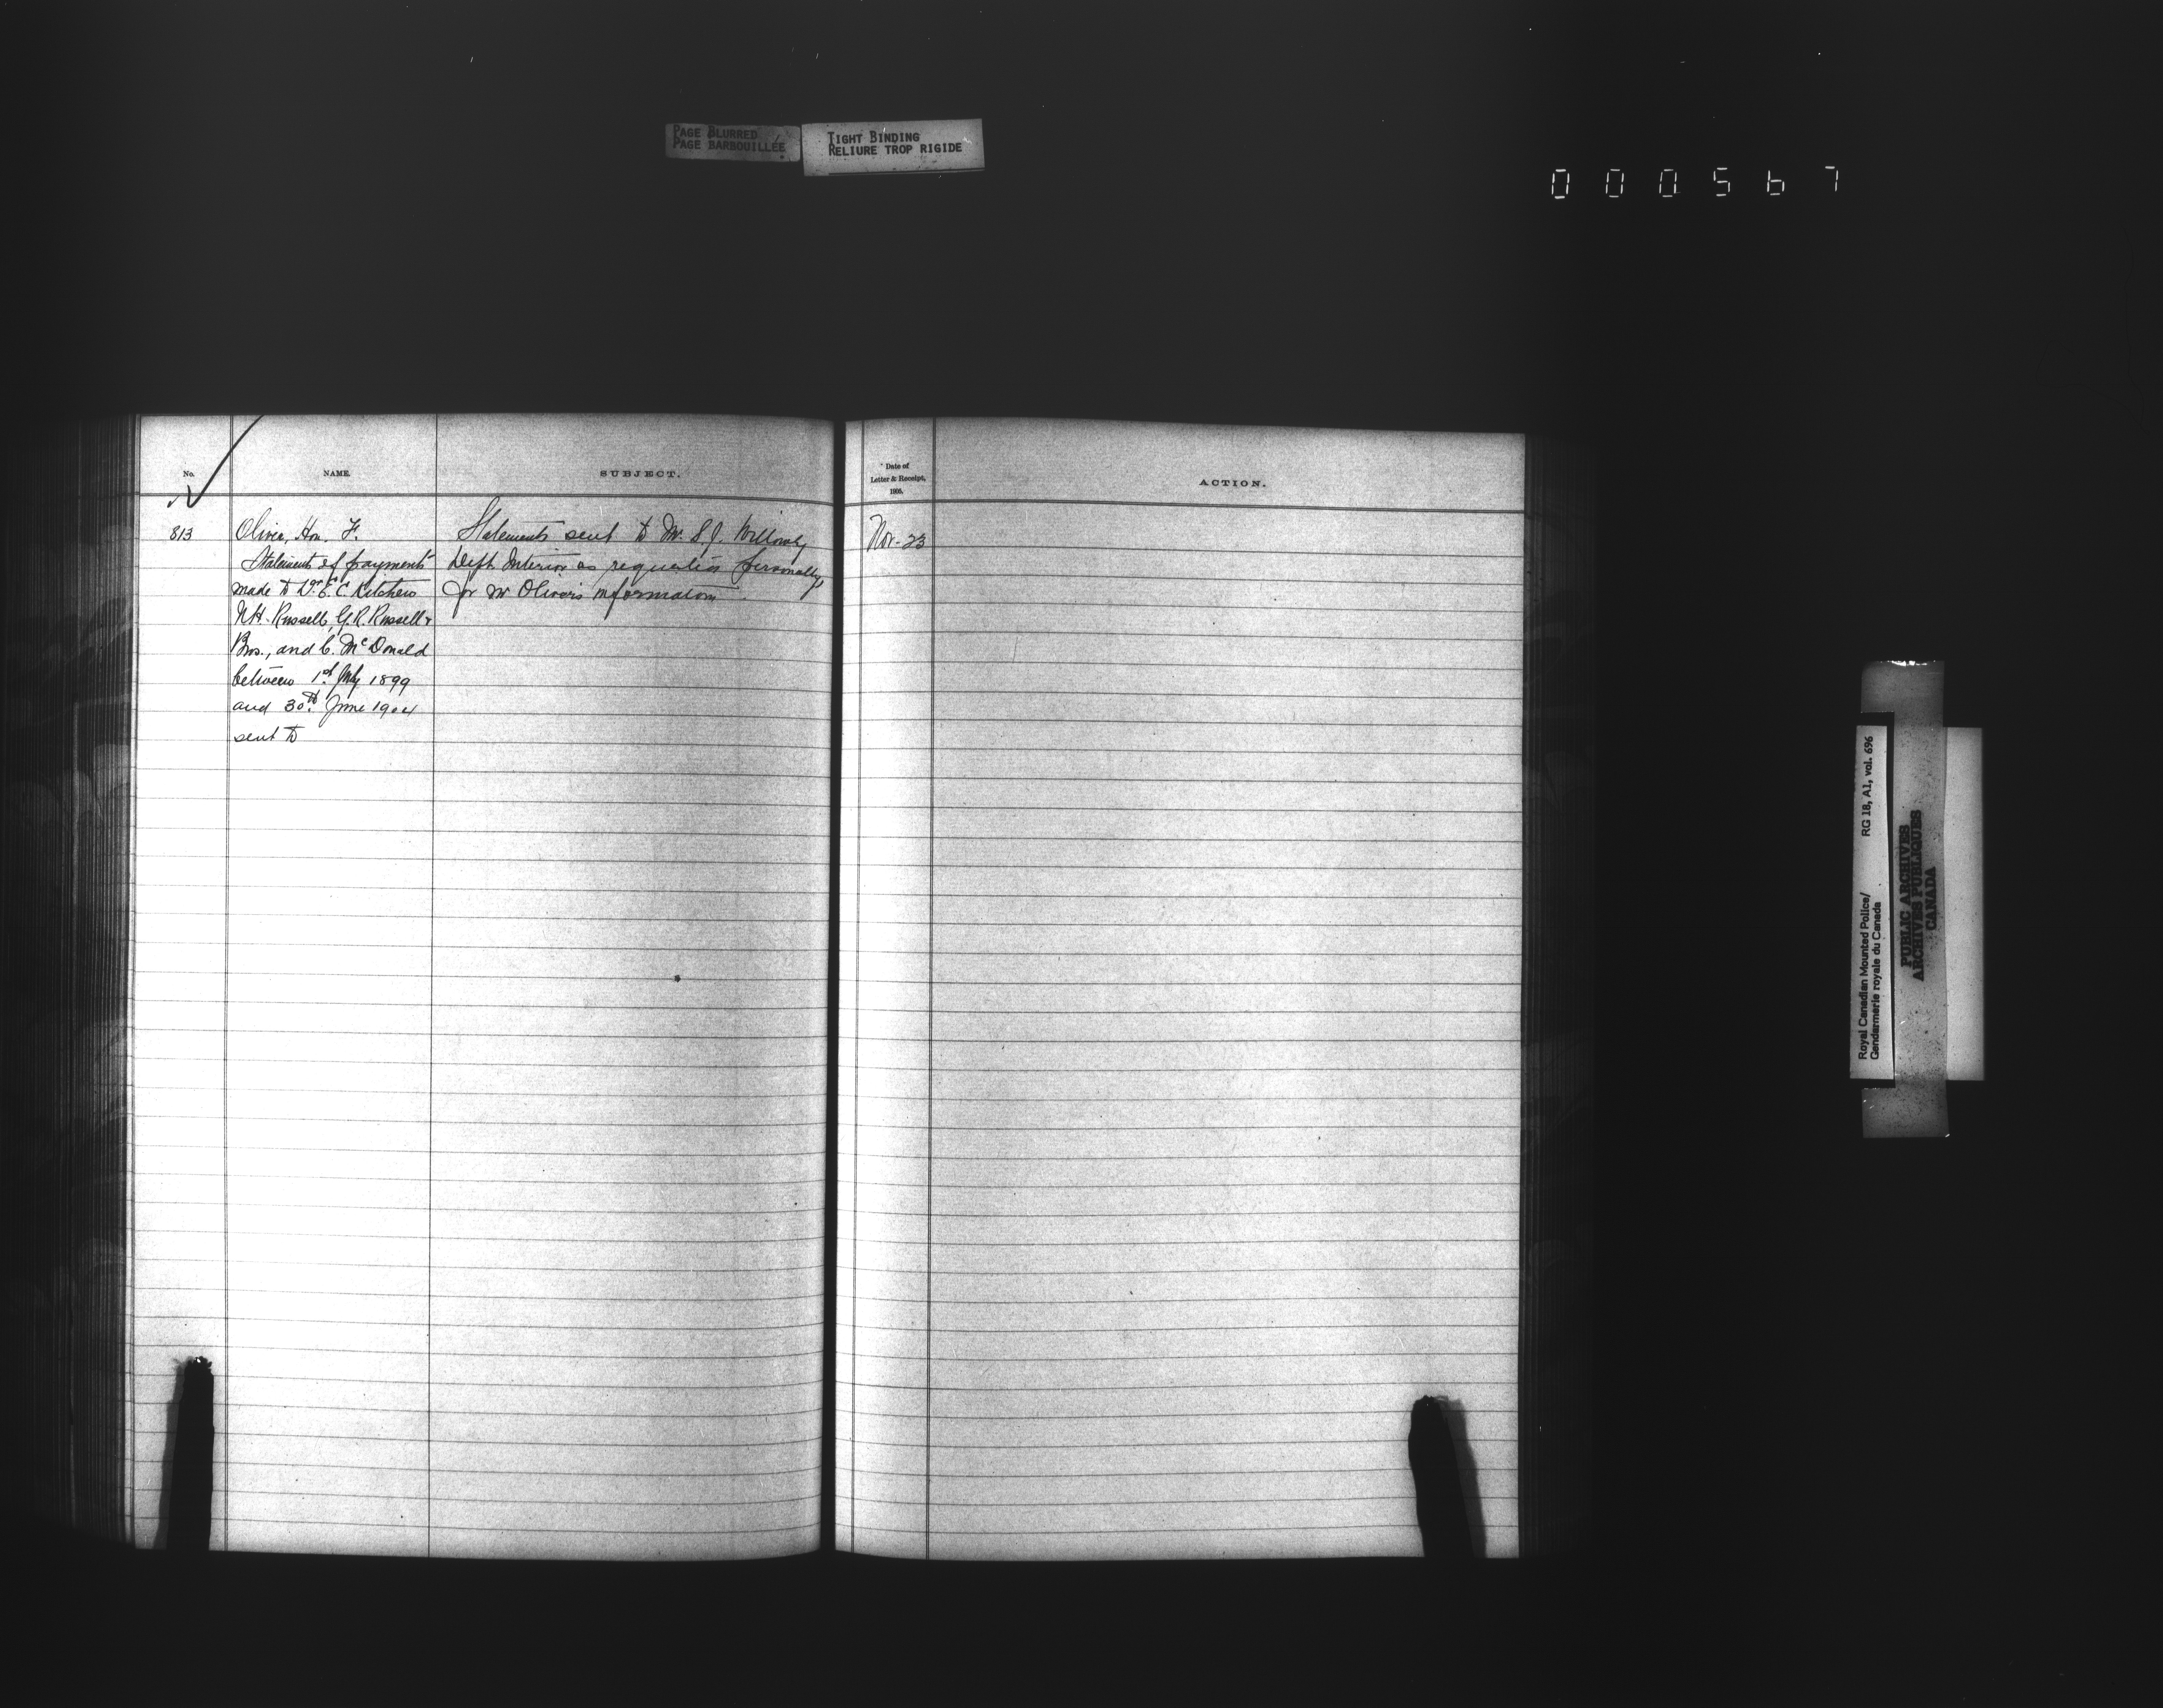 PAGE BLURRED
PAGE BARBOUILLÉE
TIGHT BINDING
RELIURE TROP RIGIDE
000567
No.
NAME.
SUBJECT.
Date of
Letter & Receipt,
1905.
ACTION.
813
Oliver, Hon. F.
Statements of payments
made to Dr. E. C. Kitchen
N.H. Russell, G.R. Russell &
Bros., and C. McDonald
between 1st July 1899
and 30th June 1904
sent to
Statements sent to Mr. S.J. Willoughby
Dept Interior as requested personally,
for Mr Oliver's information.
Nov. 23
Royal Canadian Mounted Police/ RG 18, A1, vol. 696
Gendarmerie royale du Canada
PUBLIC ARCHIVES
ARCHIVES PUBLIQUES
CANADA